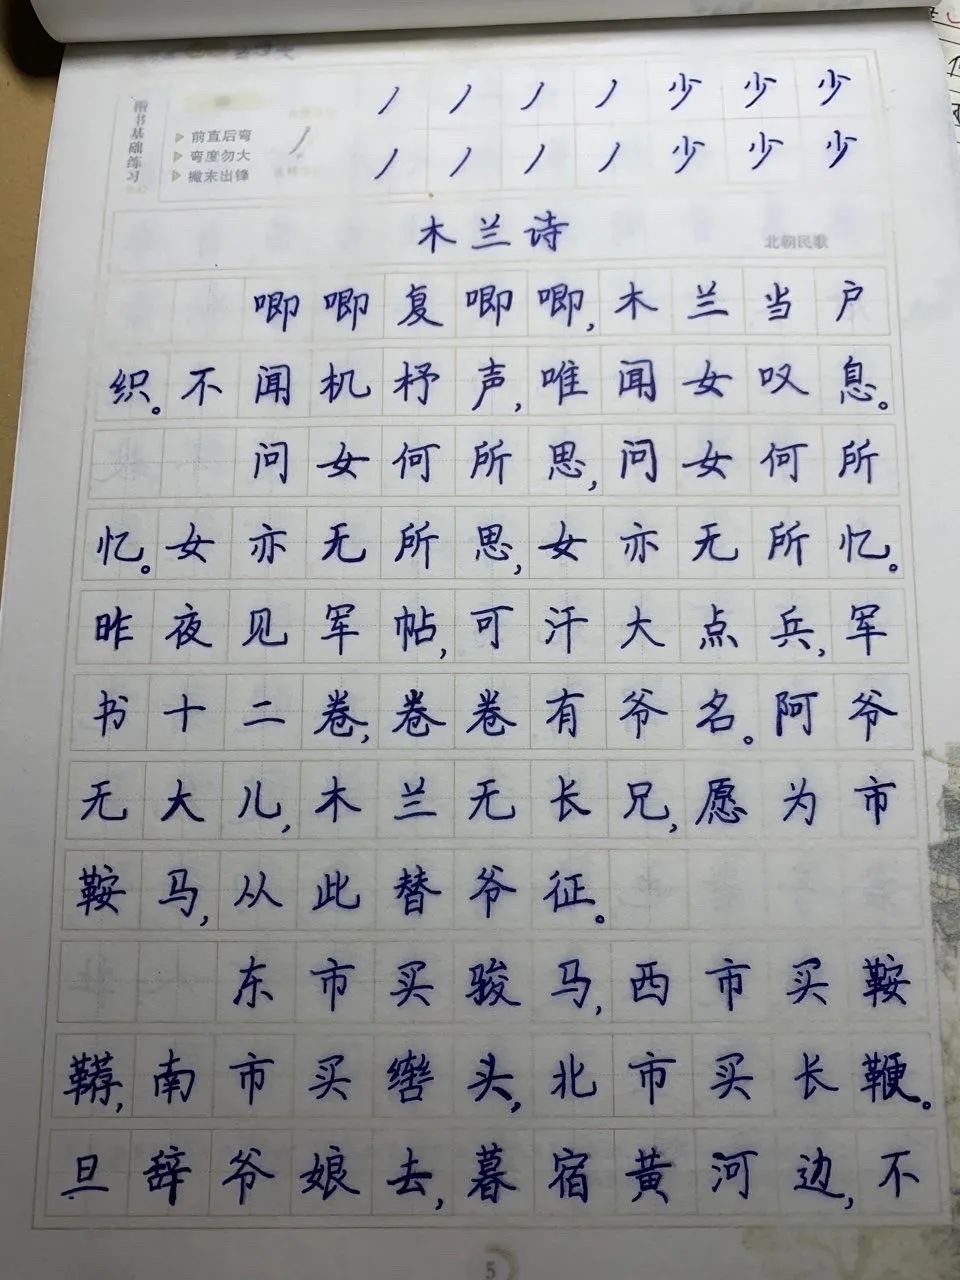 楷书基础练习
前直后弯
弯度勿大
撇末出锋
丿 丿 丿 丿 少 少 少
丿 丿 丿 丿 少 少 少
木兰诗
北朝民歌
唧唧复唧唧,木兰当户
织。不闻机杼声,唯闻女叹息。
问女何所思,问女何所
忆。女亦无所思,女亦无所忆。
昨夜见军帖,可汗大点兵,军
书十二卷,卷卷有爷名。阿爷
无大儿,木兰无长兄,愿为市
鞍马,从此替爷征。
东市买骏马,西市买鞍
鞯,南市买辔头,北市买长鞭。
旦辞爷娘去,暮宿黄河边,不
5